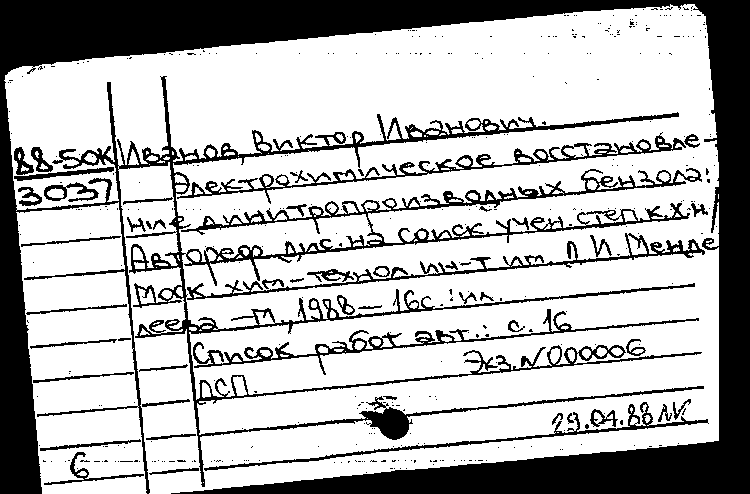 88-50К Иванов, Виктор Иванович.
3037 Электрохимическое восстановле-
ние динитропроизводных бензола:
Автореф. дис. на соиск. учен. степ. к.х.н. /
Моск. хим.-технол. ин-т им. Д. И. Менде
леева – М., 1988 – 16с. : ил.
Список работ авт.: с. 16
ДСП. Экз. N 000006.
29.04.88
6